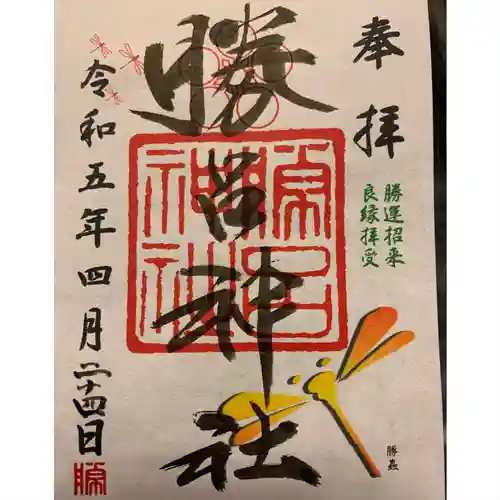 奉拝
勝運招来
良縁拝受
勝呂神社
勝呂神社
令和五年四月二十四日
勝
勝蟲